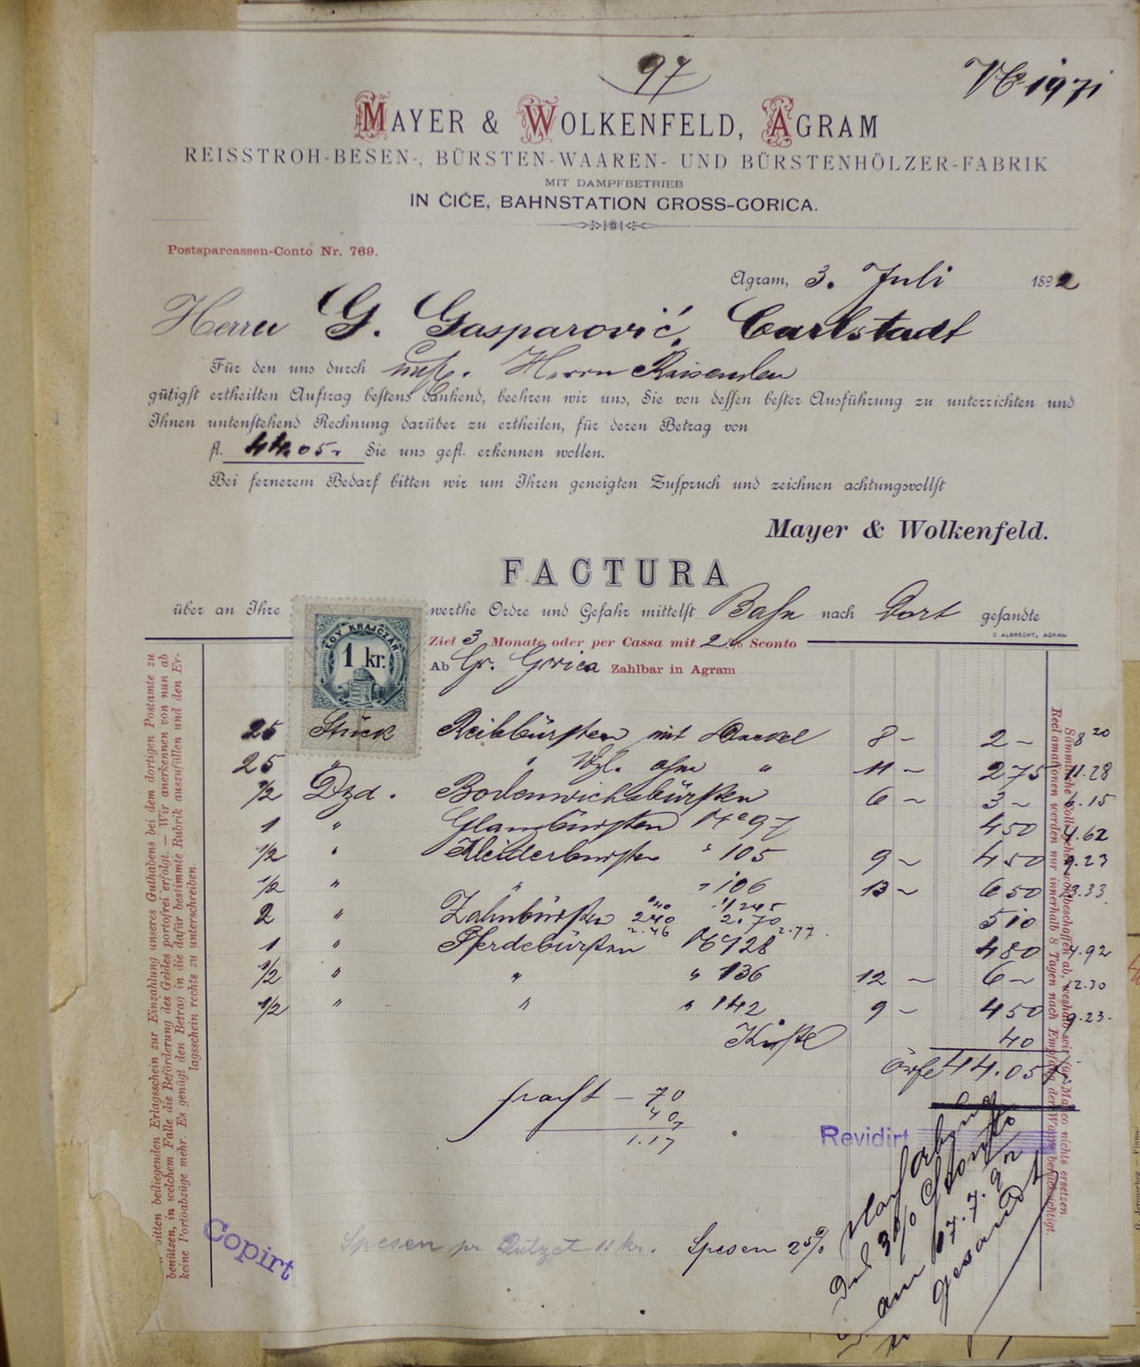 97
1971
MAYER & WOLKENFELD, AGRAM
REISSTROH-BESEN-, BÜRSTEN-WAAREN- UND BÜRSTENHÖLZER-FABRIK
MIT DAMPFBETRIEB
IN ČIČE, BAHNSTATION GROSS-GORICA.
Postsparcassen-Conto Nr. 769.
Agram, 3. Juli 1892
Herrn G. Gasparović, Carlstadt
Für den uns durch uns. Herrn Reisenden
gütigst ertheilten Auftrag bestens dankend, beehren wir uns, Sie von dessen bester Ausführung zu unterrichten und
Ihnen untenstehend Rechnung darüber zu ertheilen, für deren Betrag von
fl. 44.05 Sie uns gefl. erkennen wollen.
Bei fernerem Bedarf bitten wir um Ihren geneigten Zuspruch und zeichnen achtungsvollst
Mayer & Wolkenfeld.
FACTURA
über an Ihre werthe Ordre und Gefahr mittelst Bahn nach Dort gesandte
C. ALBRECHT, AGRAM
EGY KRAJCZÁR
1 kr.
Ziel 3 Monate oder per Cassa mit 2% Sconto
Ab Gr. Gorica Zahlbar in Agram
25 Stück Reibbürsten mit Deckel 8 – 2 – 8 20
25 " " ohne " 11 – 2 75 11.28
1/2 Dzd. Bodenwichsbürsten 6 – 3 – 6.15
1 " Glanzbürsten No 97 4 50 4.62
1/2 " Kleiderbürsten " 105 9 – 4 50 9.23
1/2 " " " 106 13 – 6 50 13.33
2 " Zahnbürsten 240 2.70 5 10
2.46 2.77
1 " Pferdebürsten No 128 4 80 4.92
1/2 " " " 136 12 – 6 – 12.30
1/2 " " " 142 9 – 4 50 9.23
Kiste 40
44.05
Fracht – 70
40
1.17
Revidirt
Copirt
Spesen pr 11 kr.
Spesen 2 5%
3% Sconto
am 17.7.92
gesandt
bitten beiliegenden Erlagsschein zur Einzahlung unseres Guthabens bei dem dortigen Postamte zu
benützen, in welchem Falle die Beförderung des Geldes portofrei erfolgt. — Wir anerkennen von nun ab
keine Portoabzüge mehr. Es genügt den Betrag in die dafür bestimmte Rubrik auszufüllen und den Er-
lagsschein rechts zu unterschreiben.
Reclamationen werden nur innerhalb 8 Tagen nach Empfang der Waare berücksichtigt.